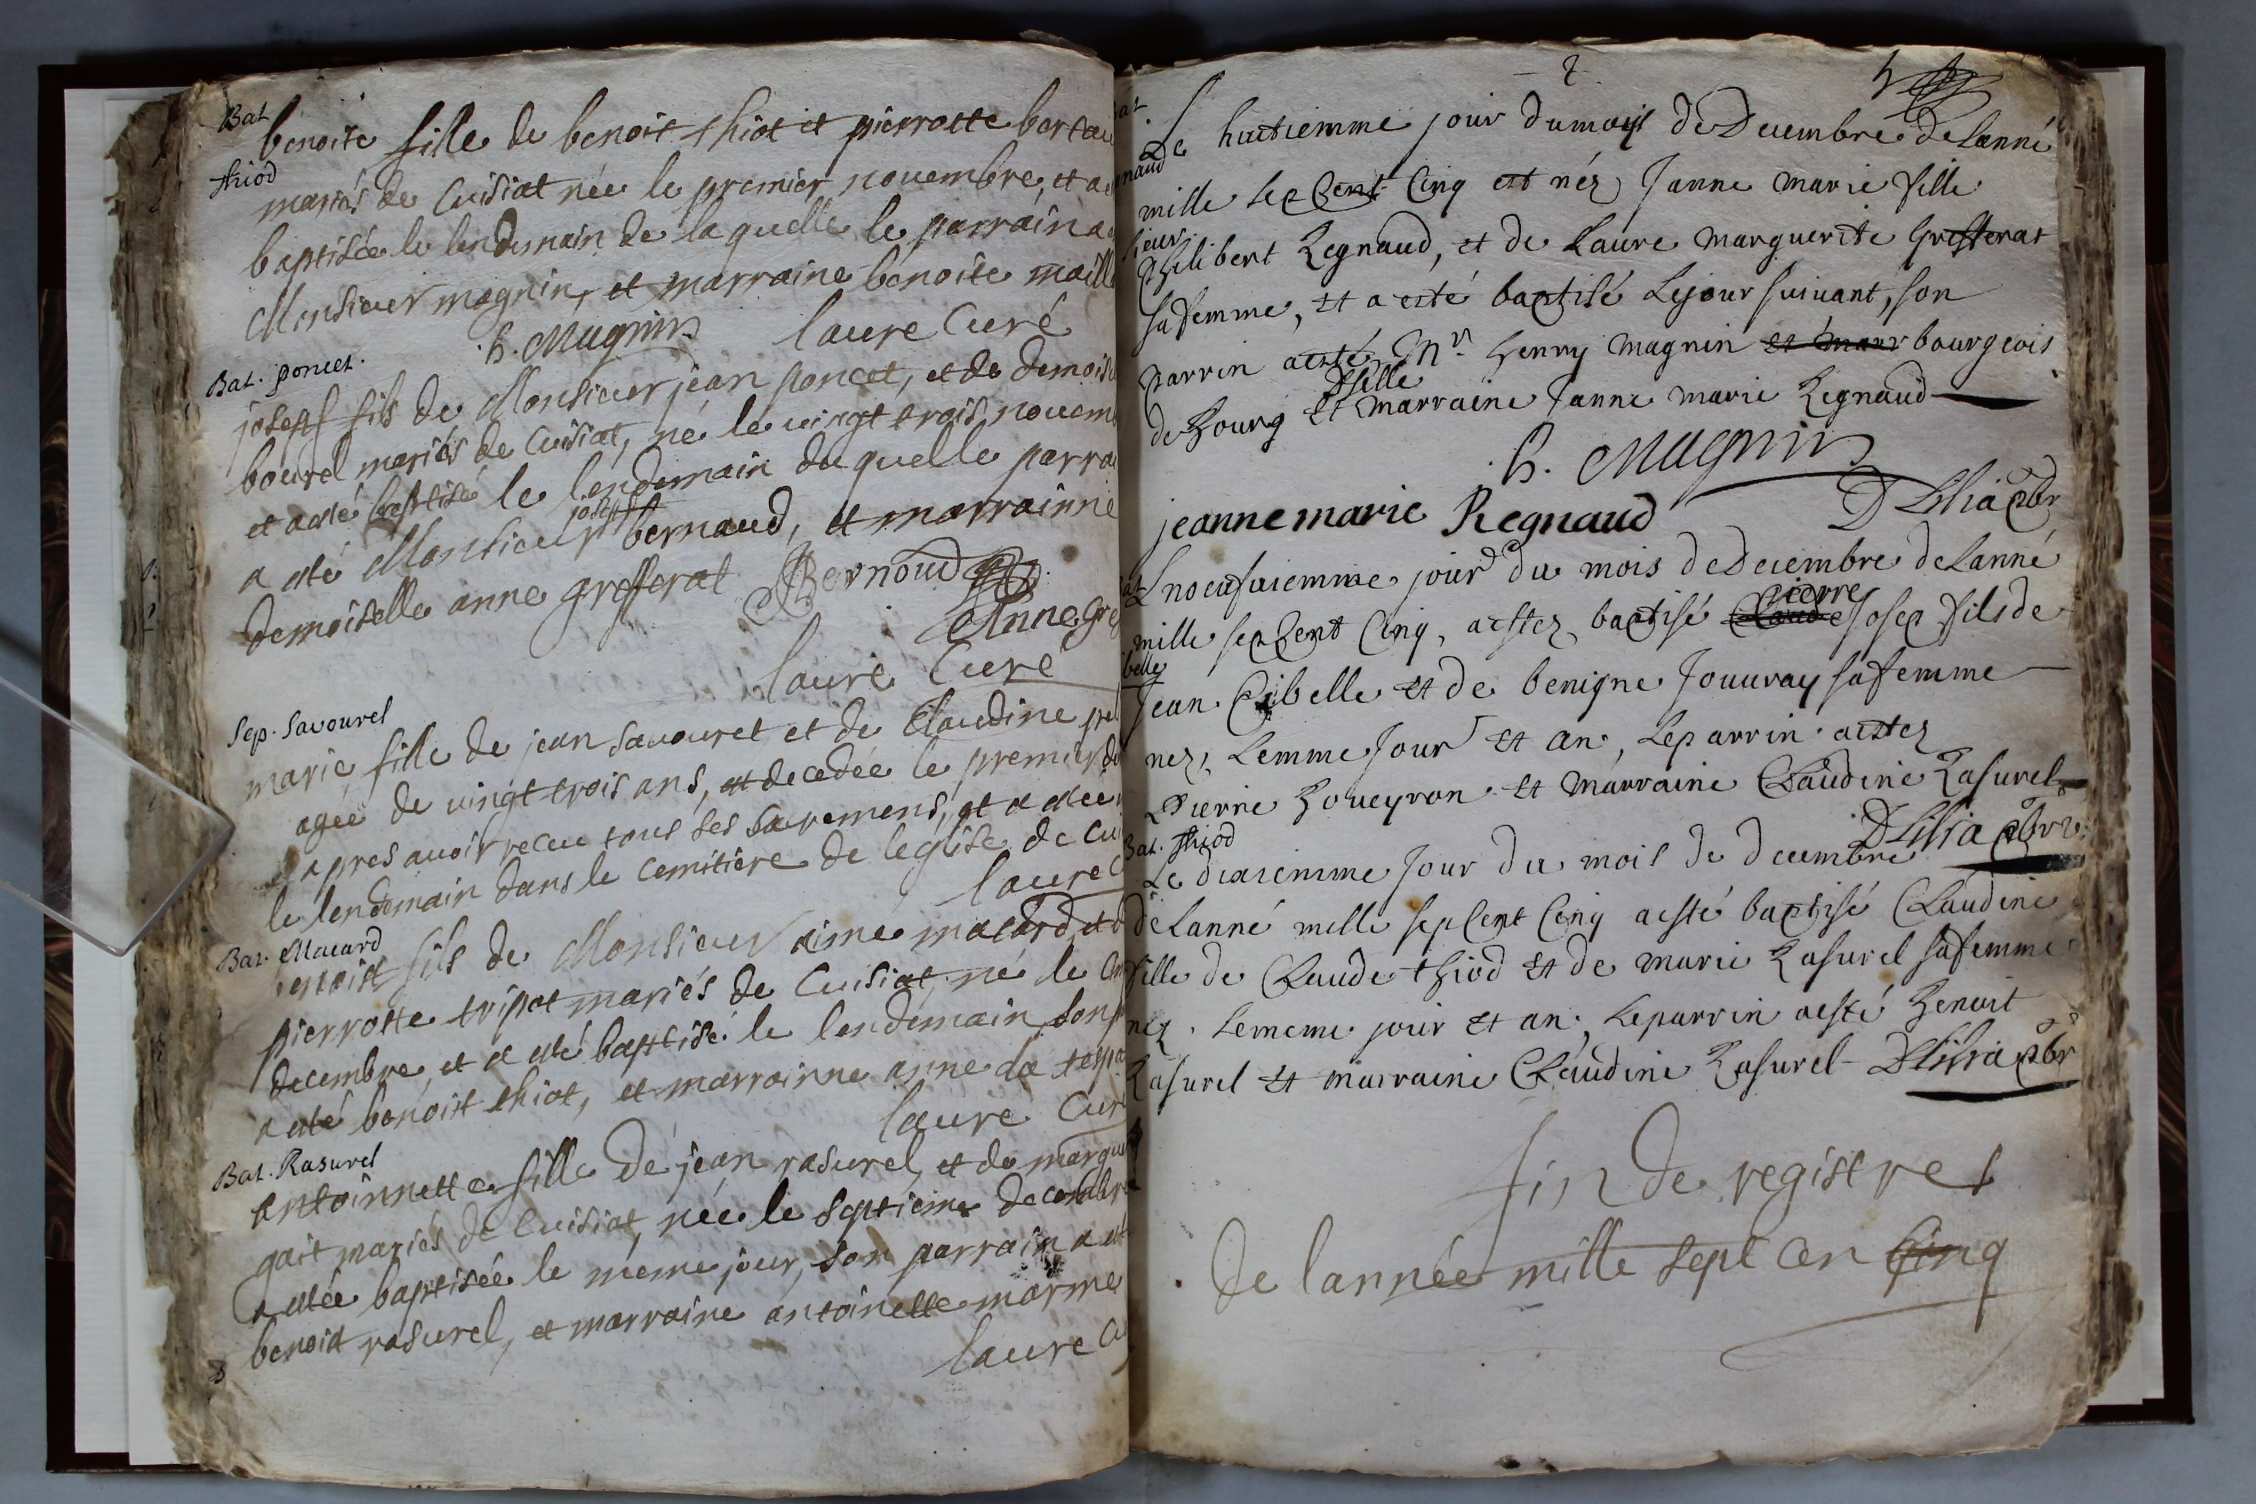 Bat
benoite fille de benoit thiot et pierrotte bertau
thiod
mariés de Cuisiat née le premier novembre, et a e
baptisée le lendemain de laquelle le parrain a e
Monsieur magnin, et marraine benoite maill
h. Magnin laure Curé
Bat. poncet.
josepf fils de Monsieur jean poncet, et de demois
bourel mariés de Cuisiat, né le vingt trois novem
et a été baptisé le lendemain duquelle parra
josepf
a été Monsieur bernaud, et marrainne
demoiselle anne grefferat JBernoud
Anne gre
laure Curé
Sep. Savourel
marie fille de jean savouret et de Claudine pel
agée de vingt trois ans, et decedée le premier de
apres avoir receu tous ses sacremens, et a etée
le lendemain dans le cemitière de leglise de cui
laure C
Bat. Macard
benoist fils de Monsieur aimé macard, et d
pierrotte tripot mariés de Cuisiat, né le
decembre, et a été baptisé le lendemain, son p
a été benoist thiot, et marrainne anne da
laure Cur
Bat. Rasurel
antoinnette fille de jean rasurel, et de margue
gait mariés de Cuisiat, née le septieme decembre
a etée baptisée le méme jour, son parrain a et
benoit rasurel, et marraine antoinette marme
laure Cu
2
Bat
Le huitiemme jour dumois de Decembre de Lanné
gnaud
mille sep Cent Cinq est néz Janne marie fille
sieur
Philibert Regnaud, et de Laure marguerite Grefferat
sa femme, Et a esté baptisé Lejour suivant, son
parrin aesté Mr. henry magnin et marr bourgeois
Dlle
de bourg Et marraine Janne marie Regnaud
h. Magnin
jeanne marie Regnaud
Bat
L noeufviemme jour du mois de Decembre de Lanné
pierre
mille sep Cent Cinq, aestez baptisé Claude Josep fils de
belle
Jean Cibelle Et de benigne Jouvray sa femme
nez, Lemme Jour Et an, Leparrin aestez
Pierre boueyron Et marraine Claudine Rasurel
Bat. thiod
Le dixiemme Jour du mois de decembre
de Lanné mille sep Cent Cinq aesté baptisé Claudine
fille de Claude thiod Et de marie Rasurel sa femme
nez. Lememe jour Et an, Leparrin aesté benoit
Rasurel Et marraine Claudine Rasurel
fin de registre
de lannée mille sept cen Cinq